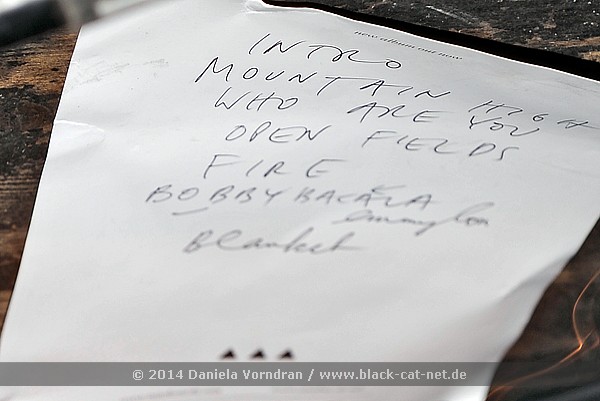 new album out now
INTRO
MOUNTAIN HIGH
WHO ARE YOU
OPEN FIELDS
FIRE
BOBBY BACALA
Blanket
© 2014 Daniela Vorndran / www.black-cat-net.de